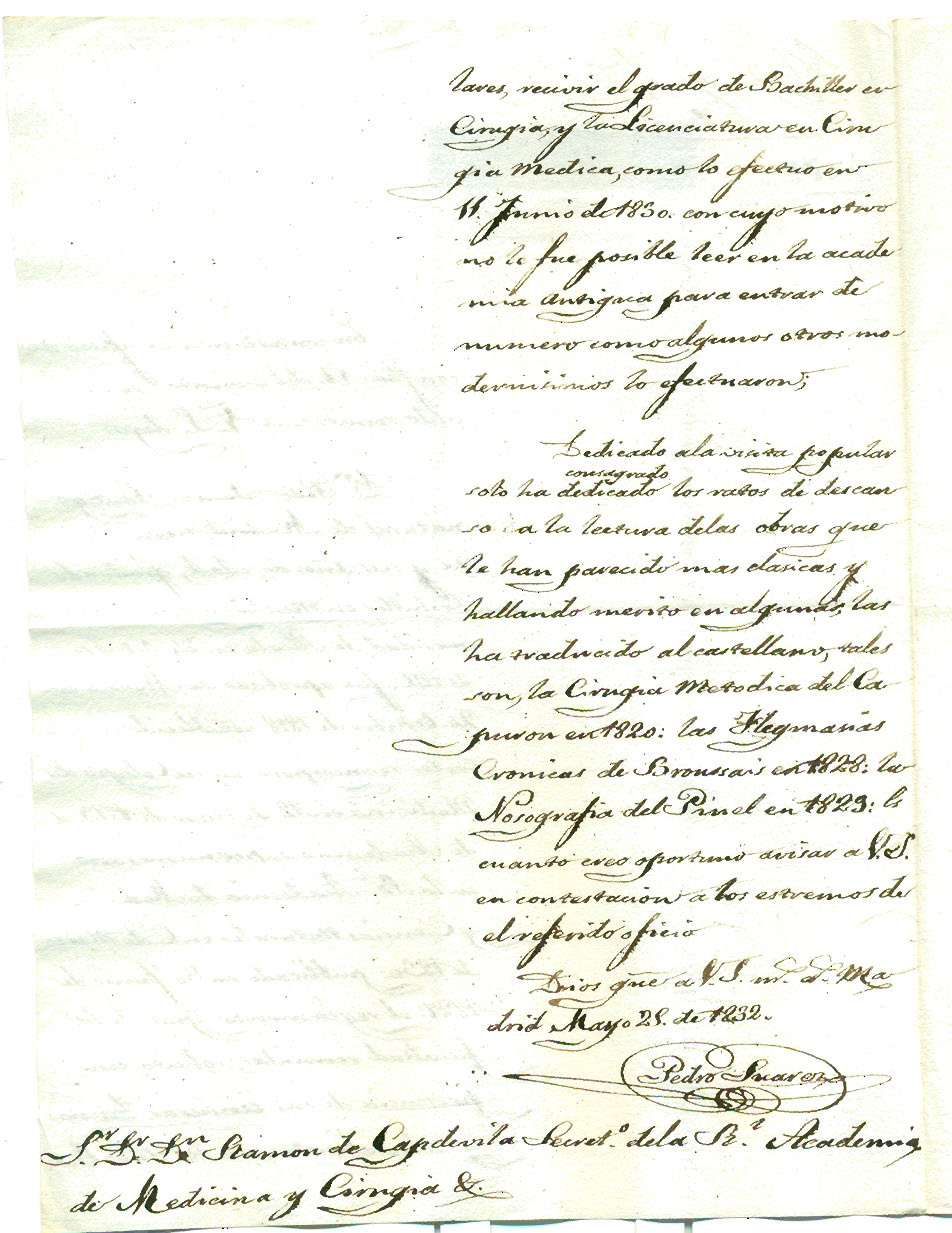 lares, recivir el grado de Bachiller en
Cirugia, y la Licenciatura en Ciru
gia Medica, como lo efectuo en
11. Junio de 1830. con cuyo motivo
no le fue posible leer en la acade
mia antigua para entrar de
numero como algunos otros mo-
dernisimos lo efectuaron;
Dedicado a la visita popular
consagrado
solo ha dedicado los ratos de descan
so a la lectura delas obras que
le han parecido mas clasicas y
hallando merito en algunas, las
ha traducido al castellano, tales
son, la Cirugia Metodica del Ca-
puron en 1820: las Flegmasias
Cronicas de Broussais en 1828: la
Nosografia del Pinel en 1829: Es
cuanto creo oportuno avisar a V.S.
en contestacion a los estremos de
el referido oficio
Dios gue a V.S. ms. as. Ma
drid Mayo 28. de 1832.
Pedro Suarez
Sr. D. Dn Ramon de Capdevila Secreto. dela Rl. Academia
de Medicina y Cirugia &.